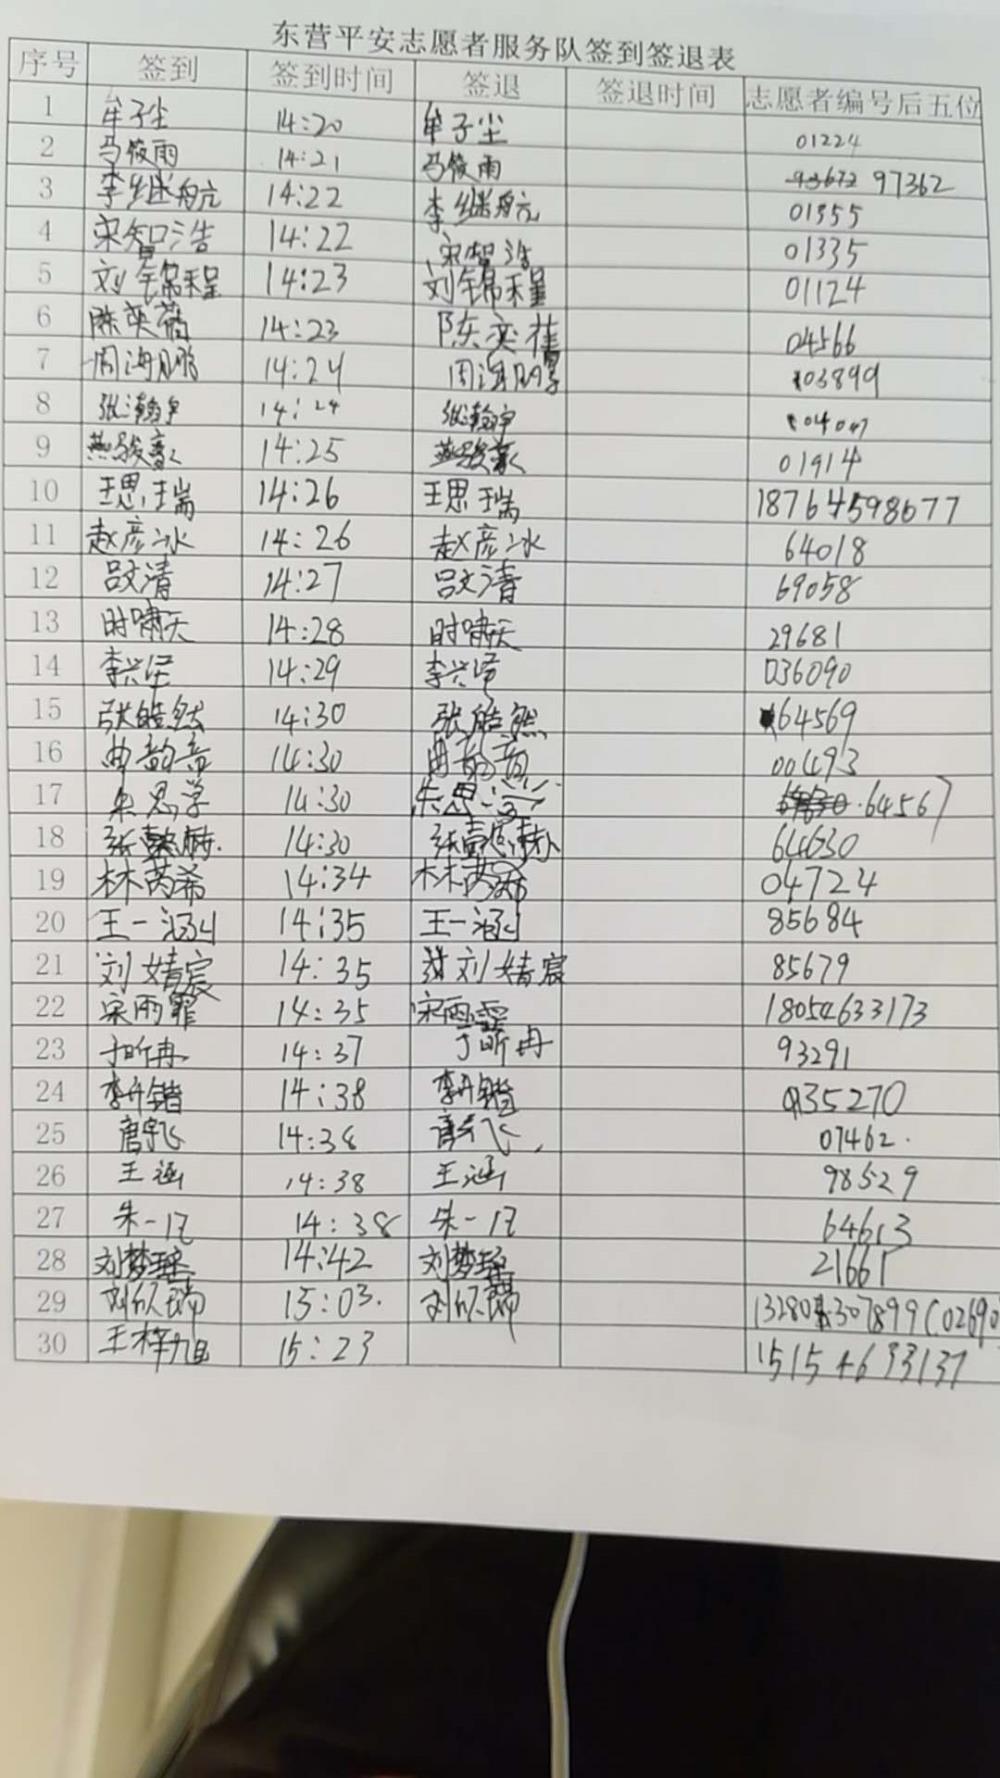 东营平安志愿者服务队签到签退表
序号 签到 签到时间 签退 签退时间 志愿者编号后五位
1 牟子尘 14:20 牟子尘 01224
2 马筱雨 14:21 马筱雨 97362
3 李继航 14:22 李继航 01355
4 宋智浩 14:22 宋智浩 01335
5 刘锦程 14:23 刘锦程 01124
6 陈奕蓓 14:23 陈奕蓓 04566
7 周海鹏 14:24 周海鹏 03899
8 张瀚宇 14:24 张瀚宇 04047
9 燕骏豪 14:25 燕骏豪 01914
10 王思瑞 14:26 王思瑞 18764598677
11 赵彦冰 14:26 赵彦冰 64018
12 吕文清 14:27 吕文清 69058
13 时啸天 14:28 时啸天 29681
14 李兴 14:29 李兴 036090
15 张皓然 14:30 张皓然 64569
16 曲韵音 14:30 曲韵音 00493
17 朱思学 14:30 朱思学 64567
18 张 14:30 张 64630
19 林芮希 14:34 林芮希 04724
20 王一涵 14:35 王一涵 85684
21 刘婧宸 14:35 刘婧宸 85679
22 宋雨霏 14:35 宋雨霏 18054633173
23 于昕冉 14:37 于昕冉 93291
24 李升锴 14:38 李升锴 035270
25 唐宇飞 14:38 唐宇飞 07462
26 王涵 14:38 王涵 98529
27 朱一凡 14:38 朱一凡 64613
28 刘梦瑶 14:42 刘梦瑶 21661
29 刘欣瑞 15:03 刘欣瑞 13280307899(02690
30 王梓旭 15:23 15154633137